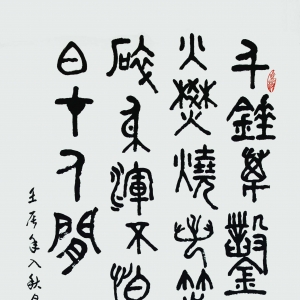 千錘萬鑿
火焚燒若等
碎身渾不怕
白在人間
壬辰年入秋